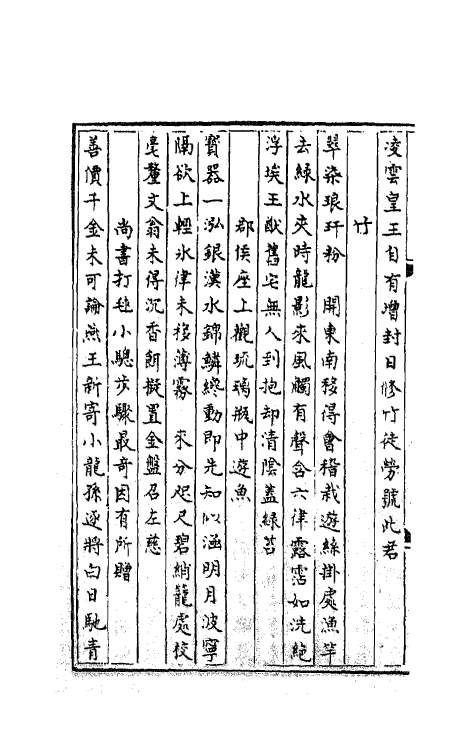 凌雲皇王自有增封日修竹徒勞號此君
竹
翠染琅玕粉　開東南移得會稽栽遊絲掛處漁竿
去緑水夾時龍影來風觸有聲含六律露霑如洗絶
浮埃王猷舊宅無人到抱却清陰蓋緑苔
郡侯座上觀琉璃瓶中遊魚
寶器一泓銀漢水錦鱗纔動即先知似涵明月波寧
隔欲上輕冰律未移薄霧　來分咫尺碧綃籠處校
毫釐文翁未得沉香餌擬置金盤召左慈
尚書打毬小驄步驟最奇因有所贈
善價千金未可論燕王新寄小龍孫逐將白日馳青